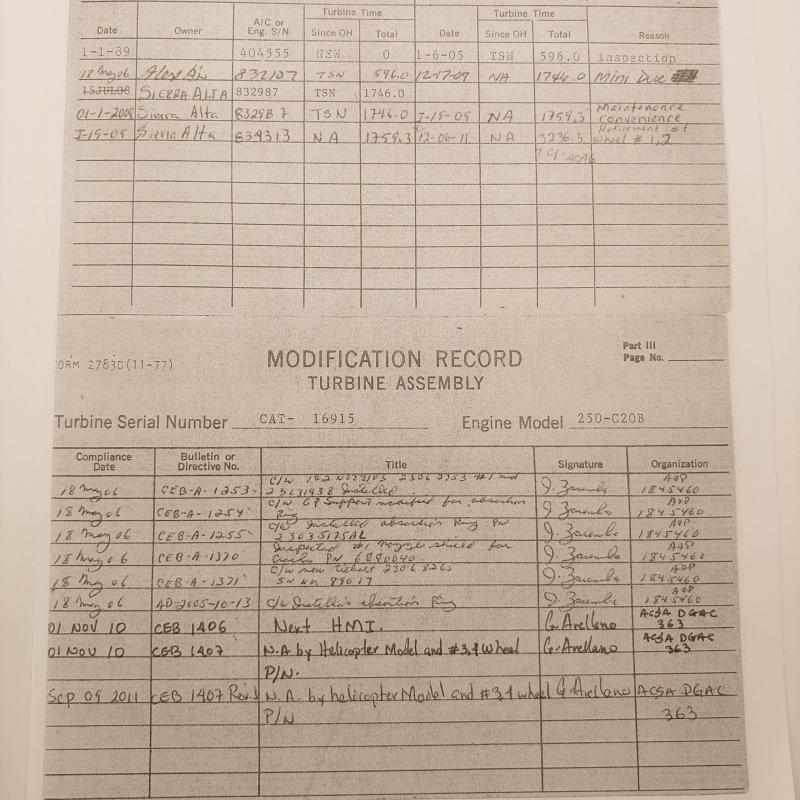 Turbine Time Turbine Time
Date Owner A/C or Eng. S/N Since OH Total Date Since OH Total Reason
1-1-89 404555 NEW 0 1-6-05 TSN 596.0 inspection
18 May 06 832107 TSN 596.0 12-17-07 NA 1746.0 Mini Due
15JUL08 SIERRA ALTA 832987 TSN 1746.0
01-1-2009 Sierra Alta 832987 TSN 1746.0 I-19-09 NA 1759.3 Maintenance convenience
I-19-09 Sierra Alta 834313 NA 1759.3 12-06-11 NA 3236.3 Retirement of wheel # 1,2
FORM 2783D(11-77)
MODIFICATION RECORD
TURBINE ASSEMBLY
Part III
Page No.
Turbine Serial Number CAT- 16915 Engine Model 250-C20B
Compliance Date Bulletin or Directive No. Title Signature Organization
18 May 06 CEB-A-1253 C/W 1&2 23062753 #1 and 23631938 Installed J. 1845460
18 May 06 CEB-A-1254 C/W GP Support modified for absortion Ring J. 1845460
18 May 06 CEB-A-1255 C/W Installed absortion Ring PN 23035175AL J. 1845460
18 May 06 CEB-A-1370 Inspected #1 nozzle shield for Cracks PN 6890040 J. 1845460
18 May 06 CEB-A-1371 C/W new 23068265 SN 89017 J. 1845460
18 May 06 AD-2005-10-13 C/W absortion Ring J. 1845460
01 NOV 10 CEB 1406 Next HMI. G. Arellano ACSA DGAC 363
01 NOV 10 CEB 1407 N.A by Helicopter Model and #3,4 Wheel P/N. G. Arellano ACSA DGAC 363
Sep 09 2011 CEB 1407 Rev.1 N.A. by helicopter Model and #3,4 wheel P/N G Arellano ACSA DGAC 363